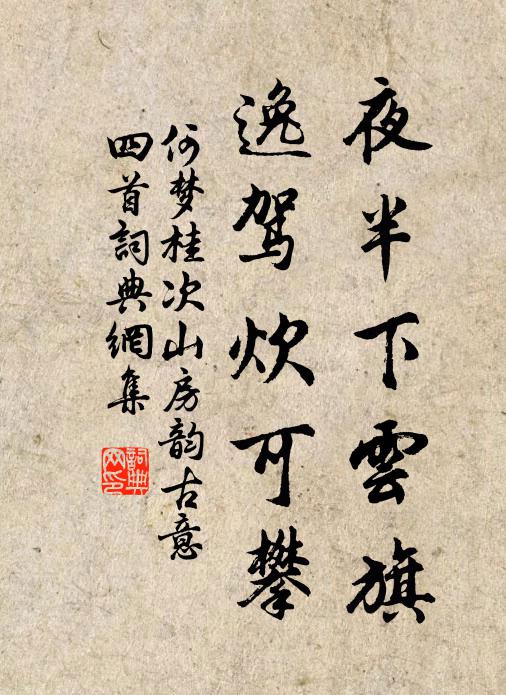 夜半下雲旗
逸驾炊可攀
何梦桂次山房韵古意
四首詞典網集
詞典
网印